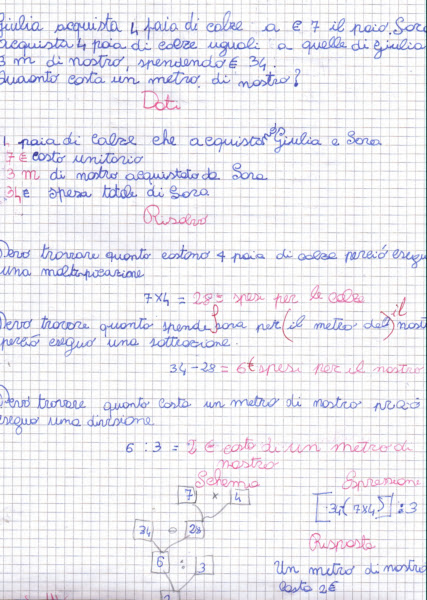 Giulia acquista 4 paia di calze a € 7 il paio. Sara
acquista 4 paia di calze uguali a quelle di Giulia
3 m di nastro, spendendo € 34.
Quaonto costa un metro di nastro?
Dati
4 paia di calze che acquistano Giulia e Sara
7 € costo unitario
3 m di nastro acquistato da Sara
34 € spesa totale di Sara
Risolvo
Devo trovare quanto costano 4 paia di calze perciò eseguo
una moltiplicazione
7x4 = 28 € spesi per le calze
Devo trovare quanto spende Sara per (il metro del) il nastro
perciò eseguo una sottrazione.
34-28 = 6€ spesi per il nastro
Devo trovare quanto costa un metro di nastro perciò
eseguo una divisione
6 : 3 = 2 € costo di un metro di
nastro
Schema Espressione
7 x 4
[34-(7x4)] : 3
34 - 28
Risposta
6 : 3
Un metro di nastro
costa 2€
2